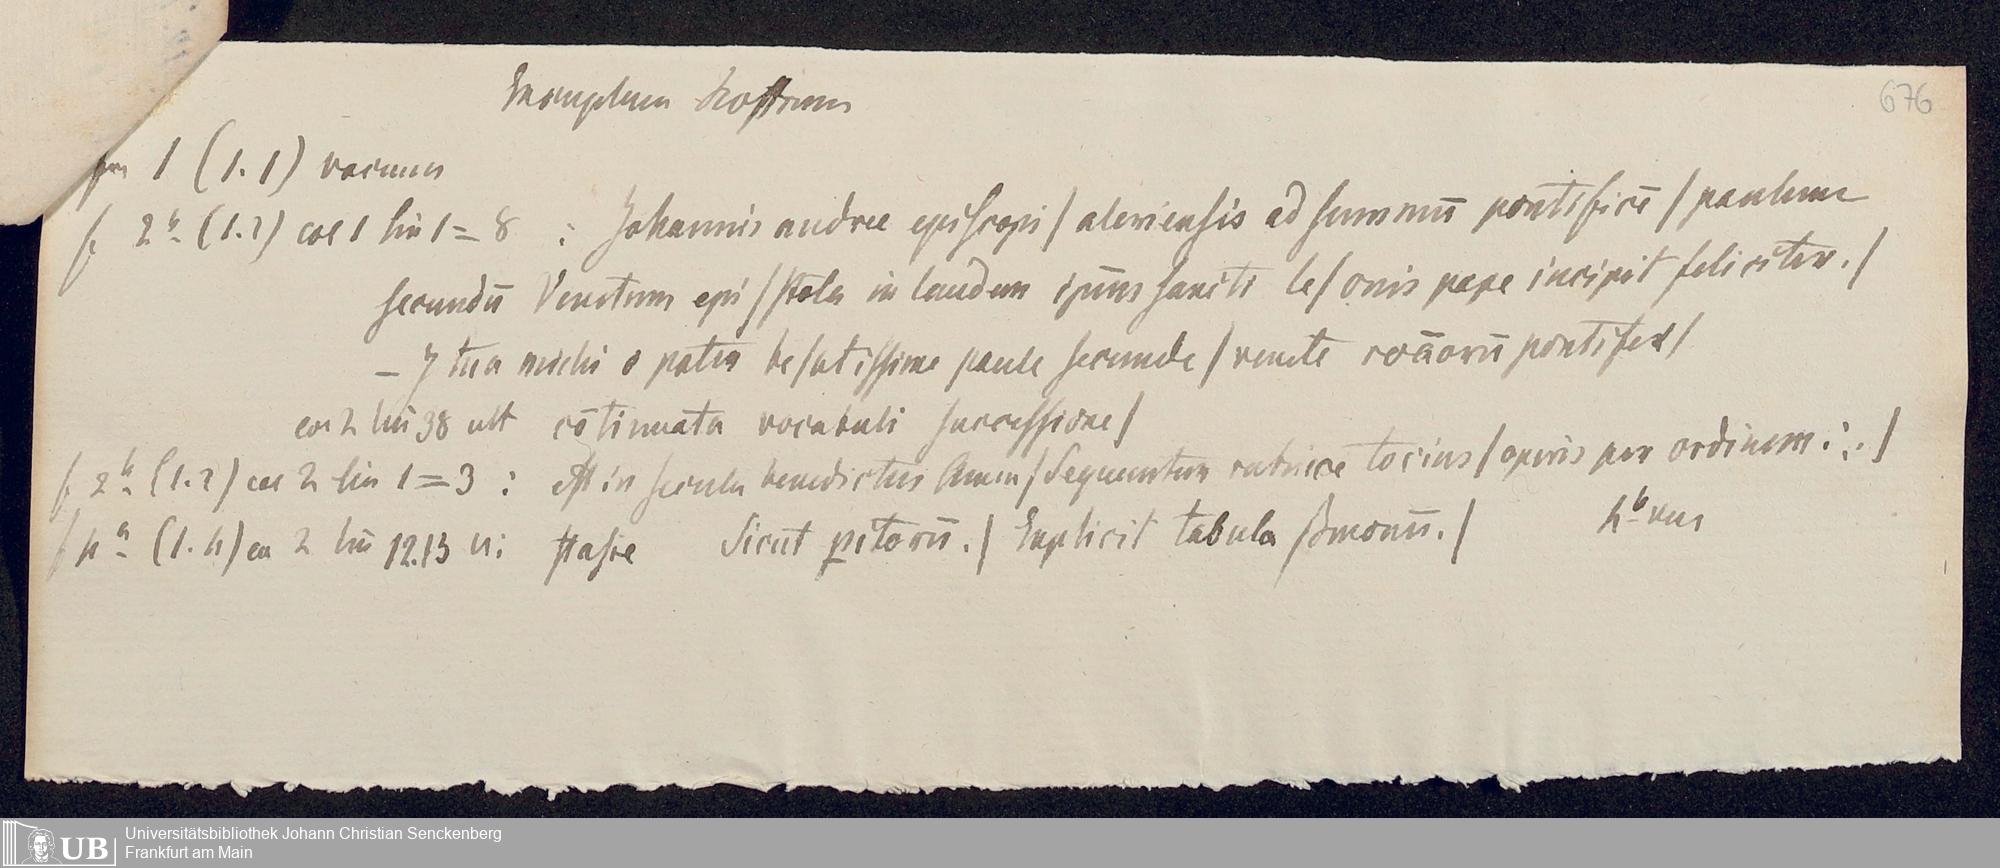 Exemplum nostrum
676
1 (1.1) vacuum
f 2b (1.2) col 1 lin 1=8 : Johannis andree episcopi / aleriensis ad summū pontificē / paulum
secundū Venetum epi / stola in laudem ipius sancti le / onis pape incipit feliciter. /
– J tua michi o pater be / atissime paule secunde / venete romanorū pontifex /
col 2 lin 38 ult cōtinuata vocabuli successione /
f 2b (1.2) col 2 lin 1=3 : est in secula benedictus Amen / Sequuntur rubrice tocius / operis per ordinem. : . /
f 4a (1.4) col 2 lin 12.13 u: stasie Sicut petorū. / Explicit tabula sermonū. / 4b vac
UB Universitätsbibliothek Johann Christian Senckenberg
Frankfurt am Main